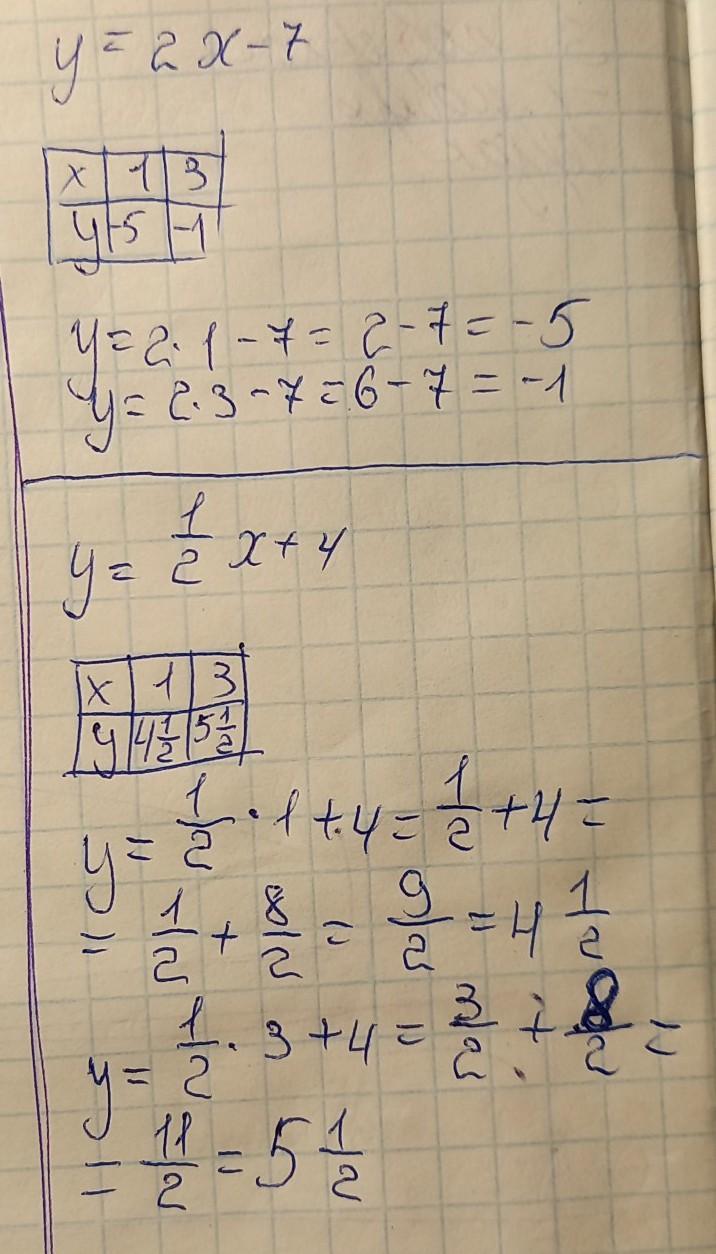 y = 2x - 7
x 1 3
y -5 -1
y = 2·1 - 7 = 2 - 7 = -5
y = 2·3 - 7 = 6 - 7 = -1
y = 1/2 x + 4
x 1 3
y 4 1/2 5 1/2
y = 1/2 · 1 + 4 = 1/2 + 4 =
= 1/2 + 8/2 = 9/2 = 4 1/2
y = 1/2 · 3 + 4 = 3/2 + 8/2 =
= 11/2 = 5 1/2